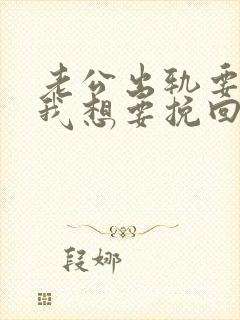 老公出轨要
我想要挽回
段娜